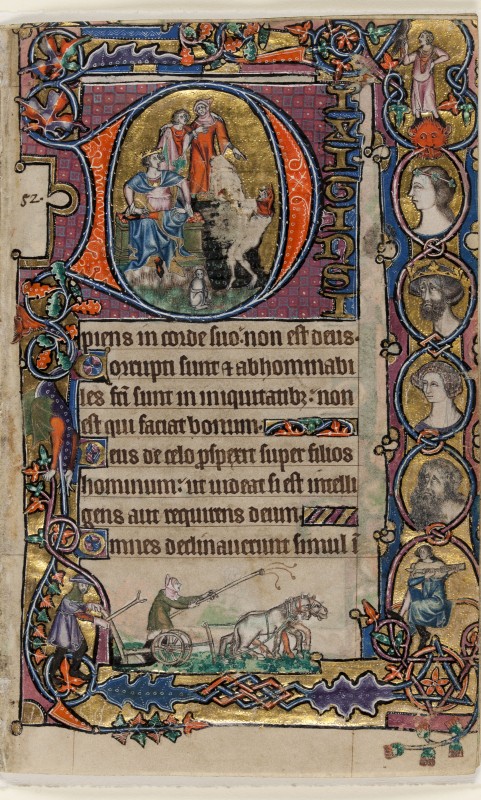 52.
DIXITINSI
piens in corde suo: non est deus.
Corrupti sunt ⁊ abhominabi
les fc̄i sunt in iniquitatibꝫ: non
est qui faciat bonum.
Deus de celo ꝓspexit super filios
hominum: ut uideat si est intelli
gens aut requirens deum.
Omnes declinauerunt simul ī